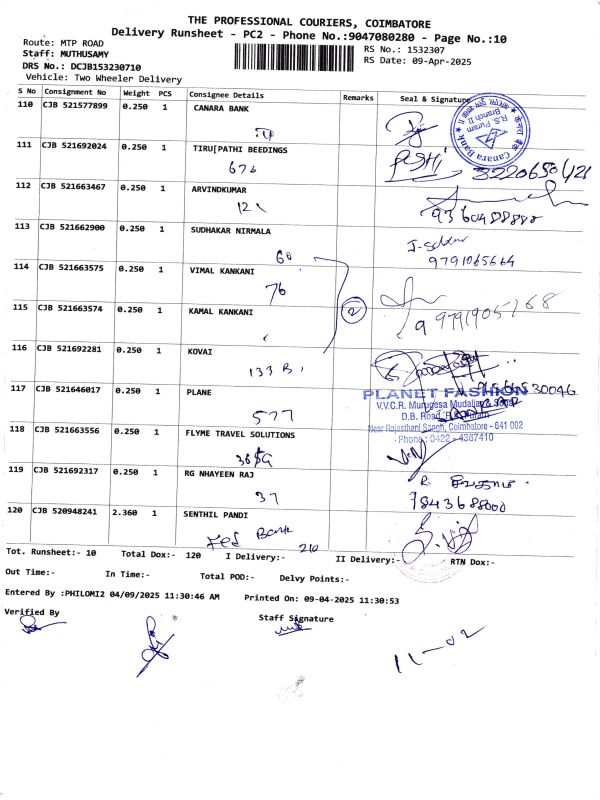 THE PROFESSIONAL COURIERS, COIMBATORE
Delivery Runsheet - PC2 - Phone No.:9047080280 - Page No.:10
Route: MTP ROAD
RS No.: 1532307
Staff: MUTHUSAMY
RS Date: 09-Apr-2025
DRS No.: DCJB153230710
Vehicle: Two Wheeler Delivery
S No Consignment No Weight PCS Consignee Details Remarks Seal & Signature
110 CJB 521577899 0.250 1 CANARA BANK
Canara Bank
R.S. Puram
Branch II
111 CJB 521692024 0.250 1 TIRU[PATHI BEEDINGS
676
3220650421
112 CJB 521663467 0.250 1 ARVINDKUMAR
121
113 CJB 521662900 0.250 1 SUDHAKAR NIRMALA
60
9791065664
114 CJB 521663575 0.250 1 VIMAL KANKANI
76
115 CJB 521663574 0.250 1 KAMAL KANKANI
2
116 CJB 521692281 0.250 1 KOVAI
133 B
117 CJB 521646017 0.250 1 PLANE
577
PLANET FASHION
V.V.C.R. Murugesa Mudaliar
D.B. Road, R.S. Puram
Near Rajasthani Sangh, Coimbatore - 641 002
Phone : 0422 - 4367410
118 CJB 521663556 0.250 1 FLYME TRAVEL SOLUTIONS
119 CJB 521692317 0.250 1 RG NHAYEEN RAJ
37
7843688000
120 CJB 520948241 2.360 1 SENTHIL PANDI
Fed Bank
210
Tot. Runsheet:- 10 Total Dox:- 120 I Delivery:- II Delivery:- RTN Dox:-
Out Time:- In Time:- Total POD:- Delvy Points:-
Entered By :PHILOMI2 04/09/2025 11:30:46 AM Printed On: 09-04-2025 11:30:53
Verified By
Staff Signature
11-02